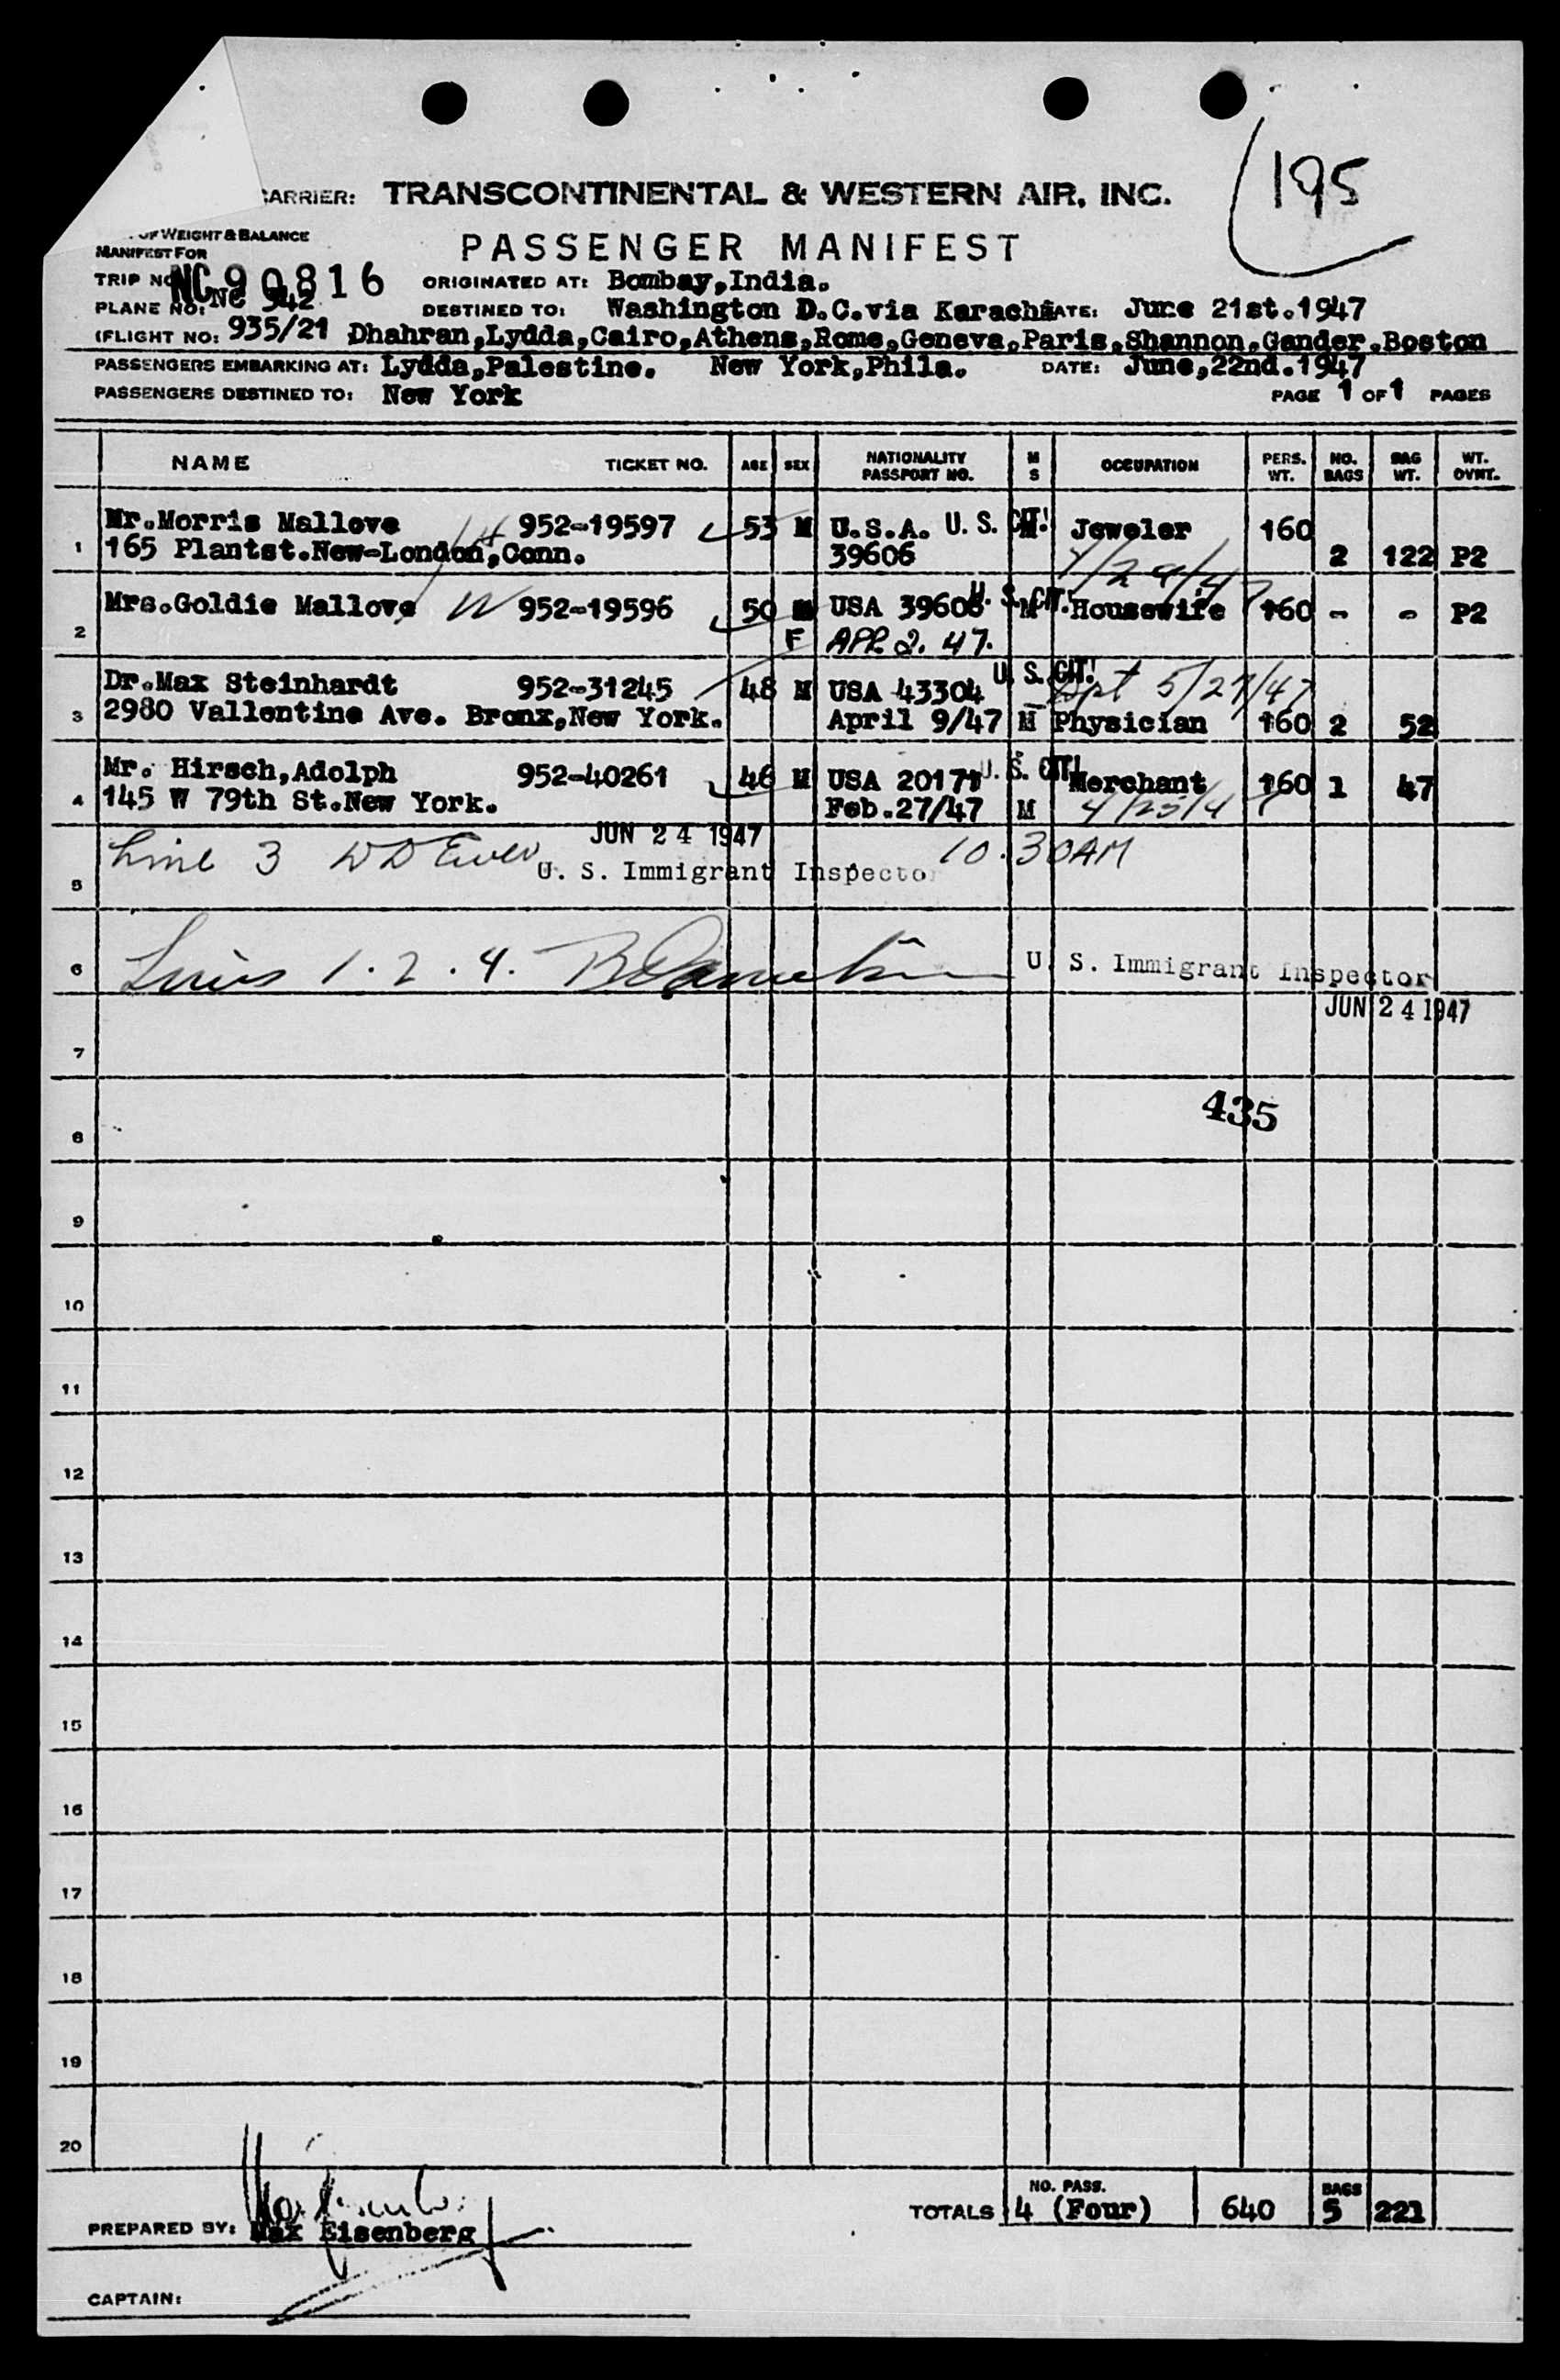 195
CARRIER: TRANSCONTINENTAL & WESTERN AIR, INC.
OF WEIGHT & BALANCE
MANIFEST FOR
PASSENGER MANIFEST
TRIP NO. NC 90816 ORIGINATED AT: Bombay,India.
PLANE NO: NC 942 DESTINED TO: Washington D.C.via Karachi DATE: June 21st.1947
(FLIGHT NO: 935/21 Dhahran,Lydda,Cairo,Athens,Rome,Geneva,Paris,Shannon,Gander,Boston
PASSENGERS EMBARKING AT: Lydda,Palestine. New York,Phila. DATE: June,22nd.1947
PASSENGERS DESTINED TO: New York PAGE 1 OF 1 PAGES
NAME TICKET NO. AGE SEX NATIONALITY PASSPORT NO. M S OCCUPATION PERS. WT. NO. BAGS BAG WT. WT. OVWT.
Mr.Morris Mallove 952-19597 53 M U.S.A. U. S. CIT! M Jeweler 160
1 165 Plantst.New-London,Conn. 39606 2 122 P2
4/29/47
Mrs.Goldie Mallove W 952-19596 50 M USA 39606 U. S. CIT! M Housewife 160 - - P2
2 F APR 2. 47.
Dr.Max Steinhardt 952-31245 48 M USA 43304 U. S. CIT! 5/27/47
3 2980 Vallentine Ave. Bronx,New York. April 9/47 M Physician 160 2 52
Mr. Hirsch,Adolph 952-40261 46 M USA 20171 U. S. CIT! Merchant 160 1 47
4 145 W 79th St.New York. Feb.27/47 M 4/23/47
JUN 24 1947
Line 3 10.30AM
5 U. S. Immigrant Inspector
6 Lines 1.2.4. U. S. Immigrant Inspector
JUN 24 1947
7
435
8
9
10
11
12
13
14
15
16
17
18
19
20
NO. PASS. BAGS
TOTALS 4 (Four) 640 5 221
PREPARED BY: Max Eisenberg
CAPTAIN: